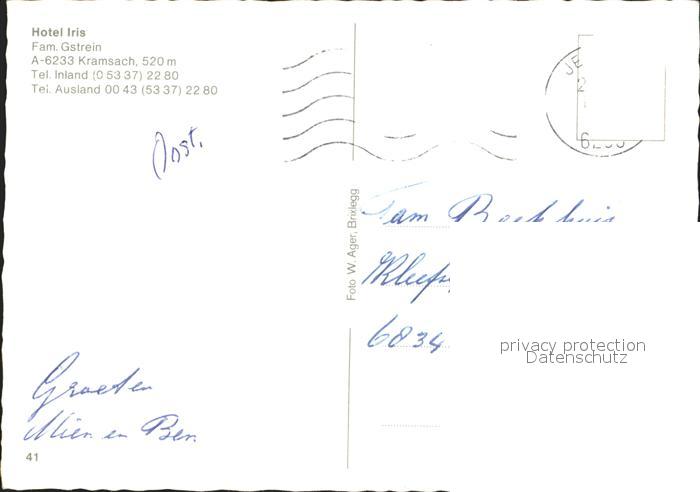 Hotel Iris
Fam. Gstrein
A-6233 Kramsach, 520 m
Tel. Inland (0 53 37) 22 80
Tel. Ausland 00 43 (53 37) 22 80
Oost.
Foto W. Ager, Brixlegg
Fam
6834
privacy protection
Datenschutz
Groeten
Mien en Ben
41